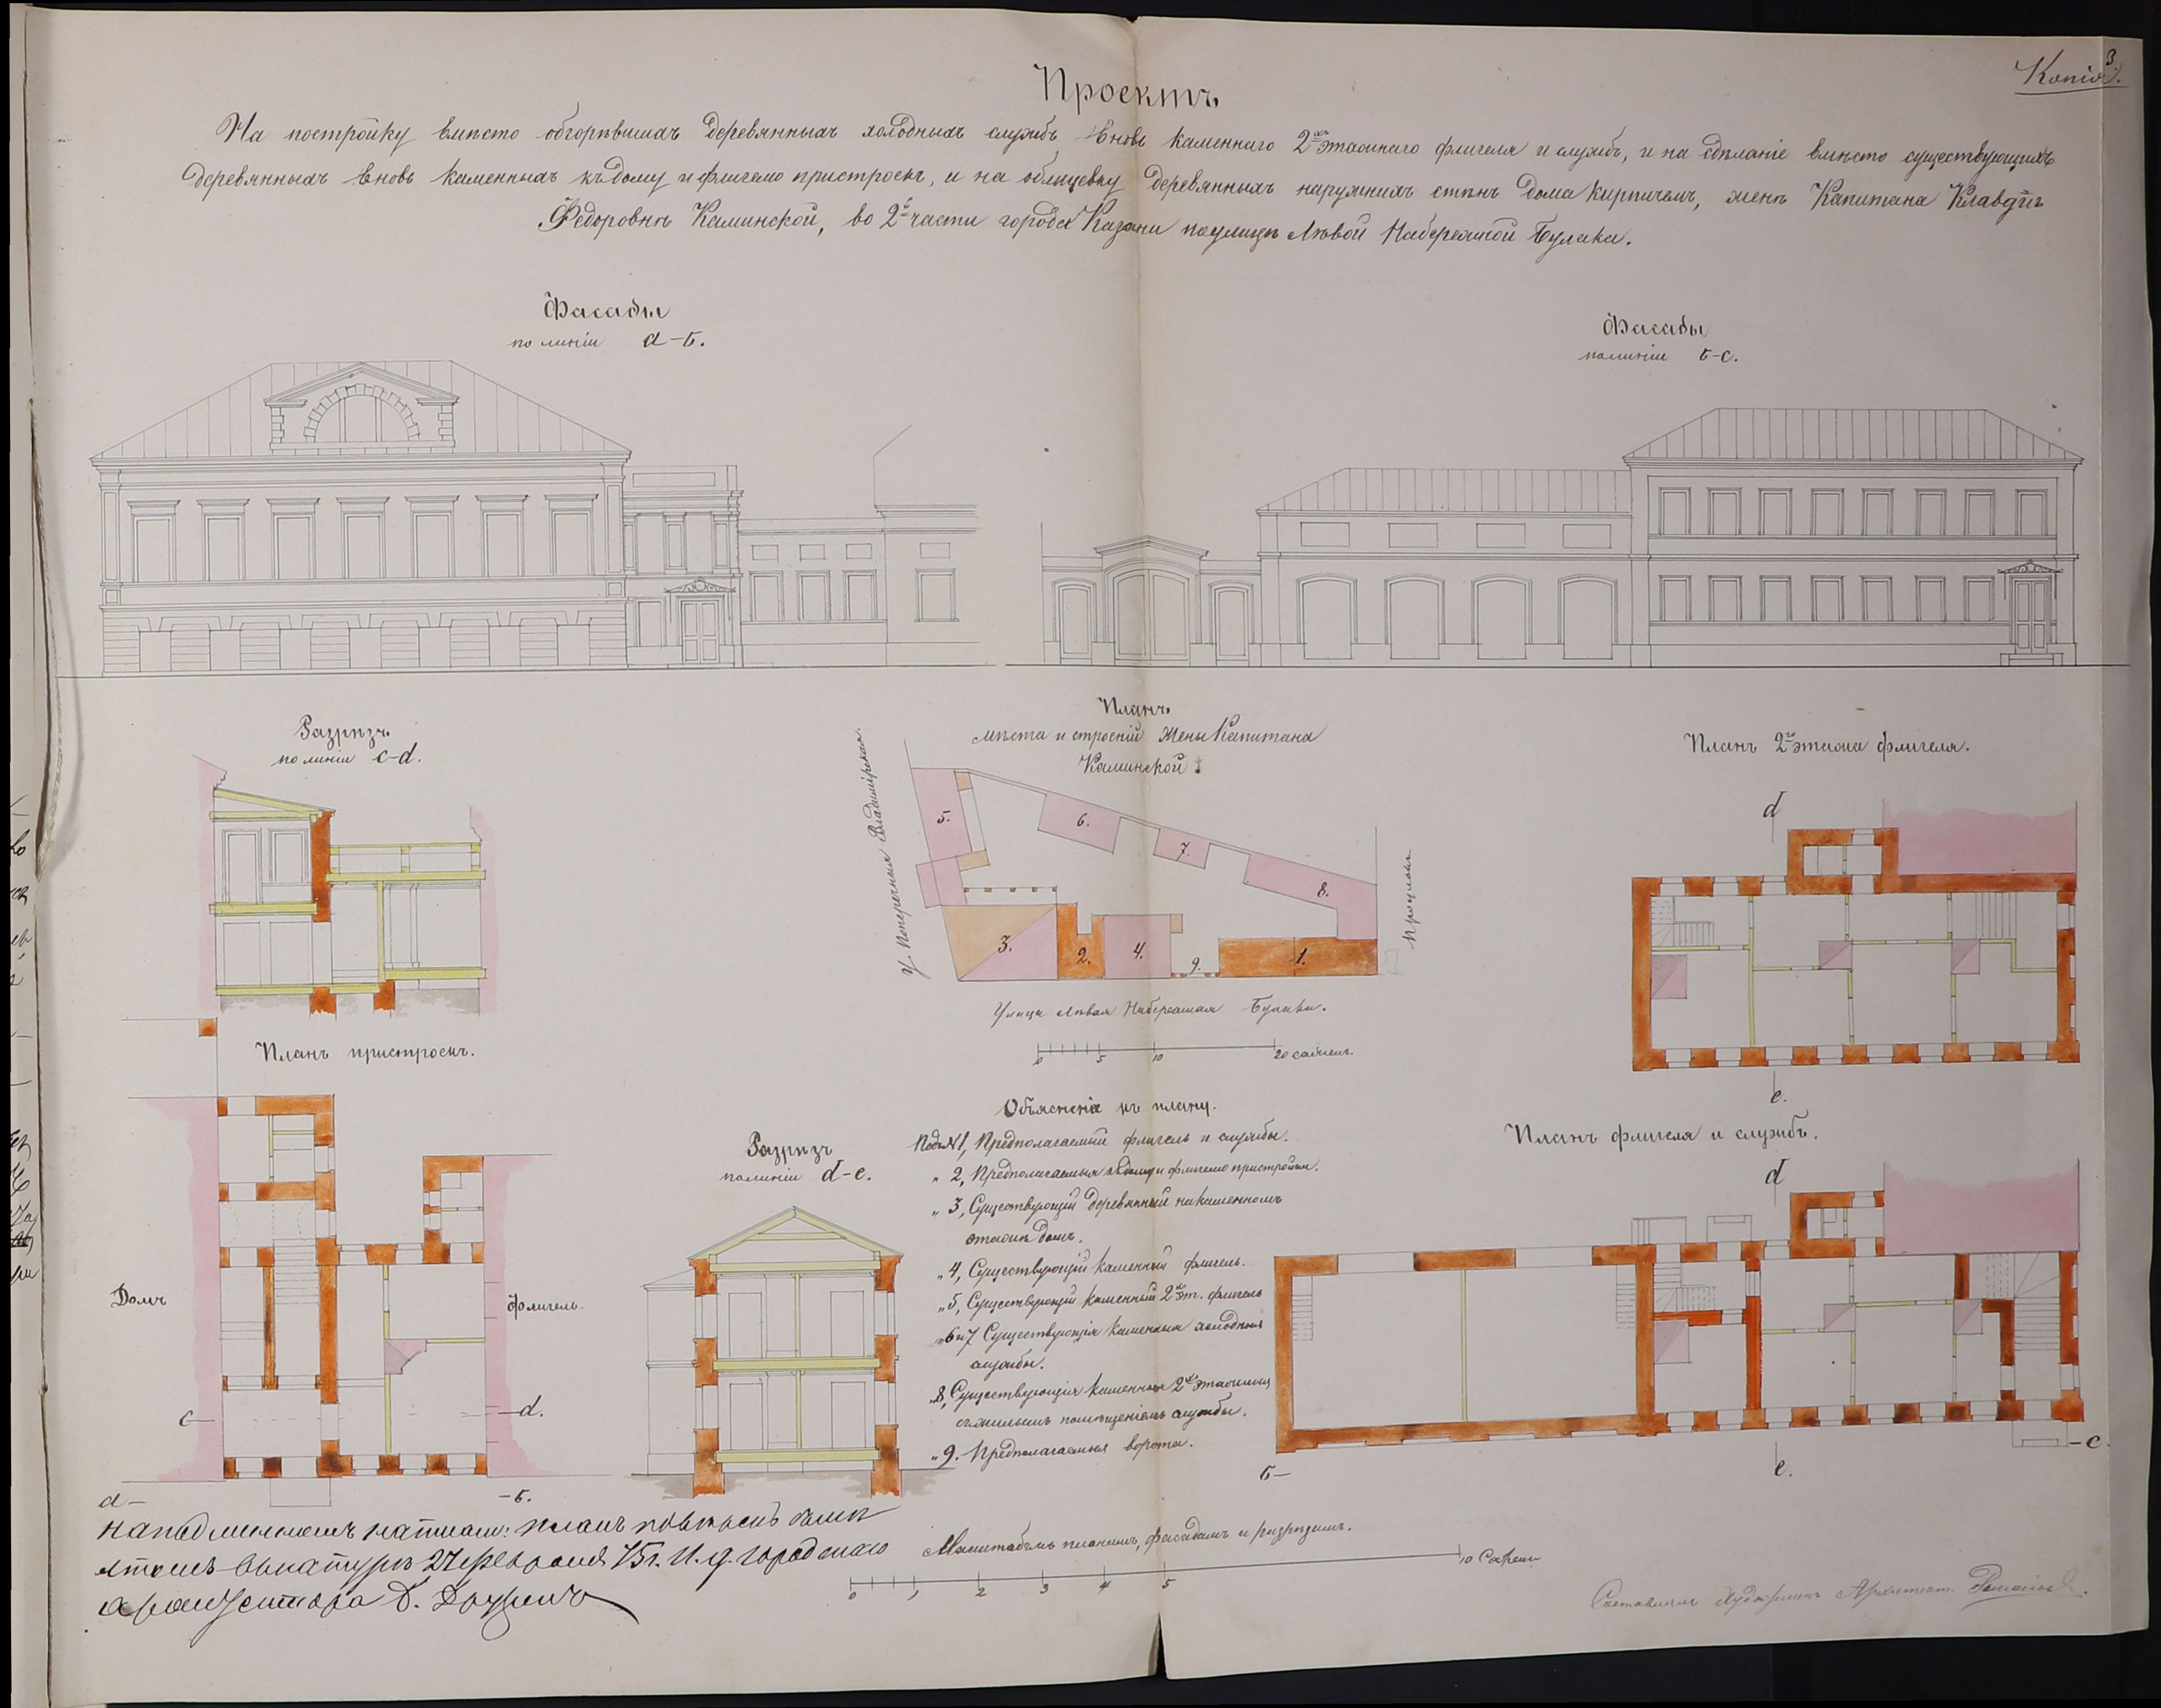 Копія.
3.
Проектъ
На постройку вмѣсто обгорѣвшихъ деревянныхъ холодныхъ службъ вновь каменнаго 2хъ этажнаго флигеля и службъ, и на сдѣланіе вмѣсто существующихъ
деревянныхъ вновь каменныхъ къ дому и флигелю пристроекъ, и на облицовку деревянныхъ наружныхъ стѣнъ дома кирпичемъ, женѣ Капитана Клавдіѣ
Федоровнѣ Каминской, во 2й части города Казани по улицѣ Лѣвой Набережной Булака.
Фасады
по линіи а-б.
Фасады
по линіи б-с.
Разрѣзъ
по линіи c-d.
Планъ
мѣста и строеній Жены Капитана
Каминской
У. Поперечная Владимірская.
5.
6.
7.
8.
3.
2.
4.
9.
1.
Улица Лѣвая Набережная Булака.
0 5 10 20 сажень.
Планъ 2го этажа флигеля.
d
e.
Планъ пристроекъ.
Домъ
Флигель.
c
d.
а
б.
Разрѣзъ
по линіи d-e.
Объясненіе къ плану.
Подъ № 1, Предполагаемый флигель и службы.
„ 2, Предполагаемыя къ дому и флигелю пристройки.
„ 3, Существующій деревянный на каменномъ
этажѣ домъ.
„ 4, Существующій каменный флигель.
„ 5, Существующій каменный 2хъ эт. флигель
„ 6 и 7 Существующія каменныя холодныя
службы.
„ 8, Существующія каменныя 2хъ этажныя
съ жилымъ помѣщеніемъ службы.
„ 9. Предполагаемыя ворота.
Планъ флигеля и службъ.
d
б
e.
с.
На подлинномъ написано: планъ
27 февраля 75 г. И. д. городскаго
архитектора
Масштабъ планамъ, фасадамъ и разрѣзамъ.
0 1 2 3 4 5 10 Сажень
Составилъ Художникъ Архитект. Романовъ.